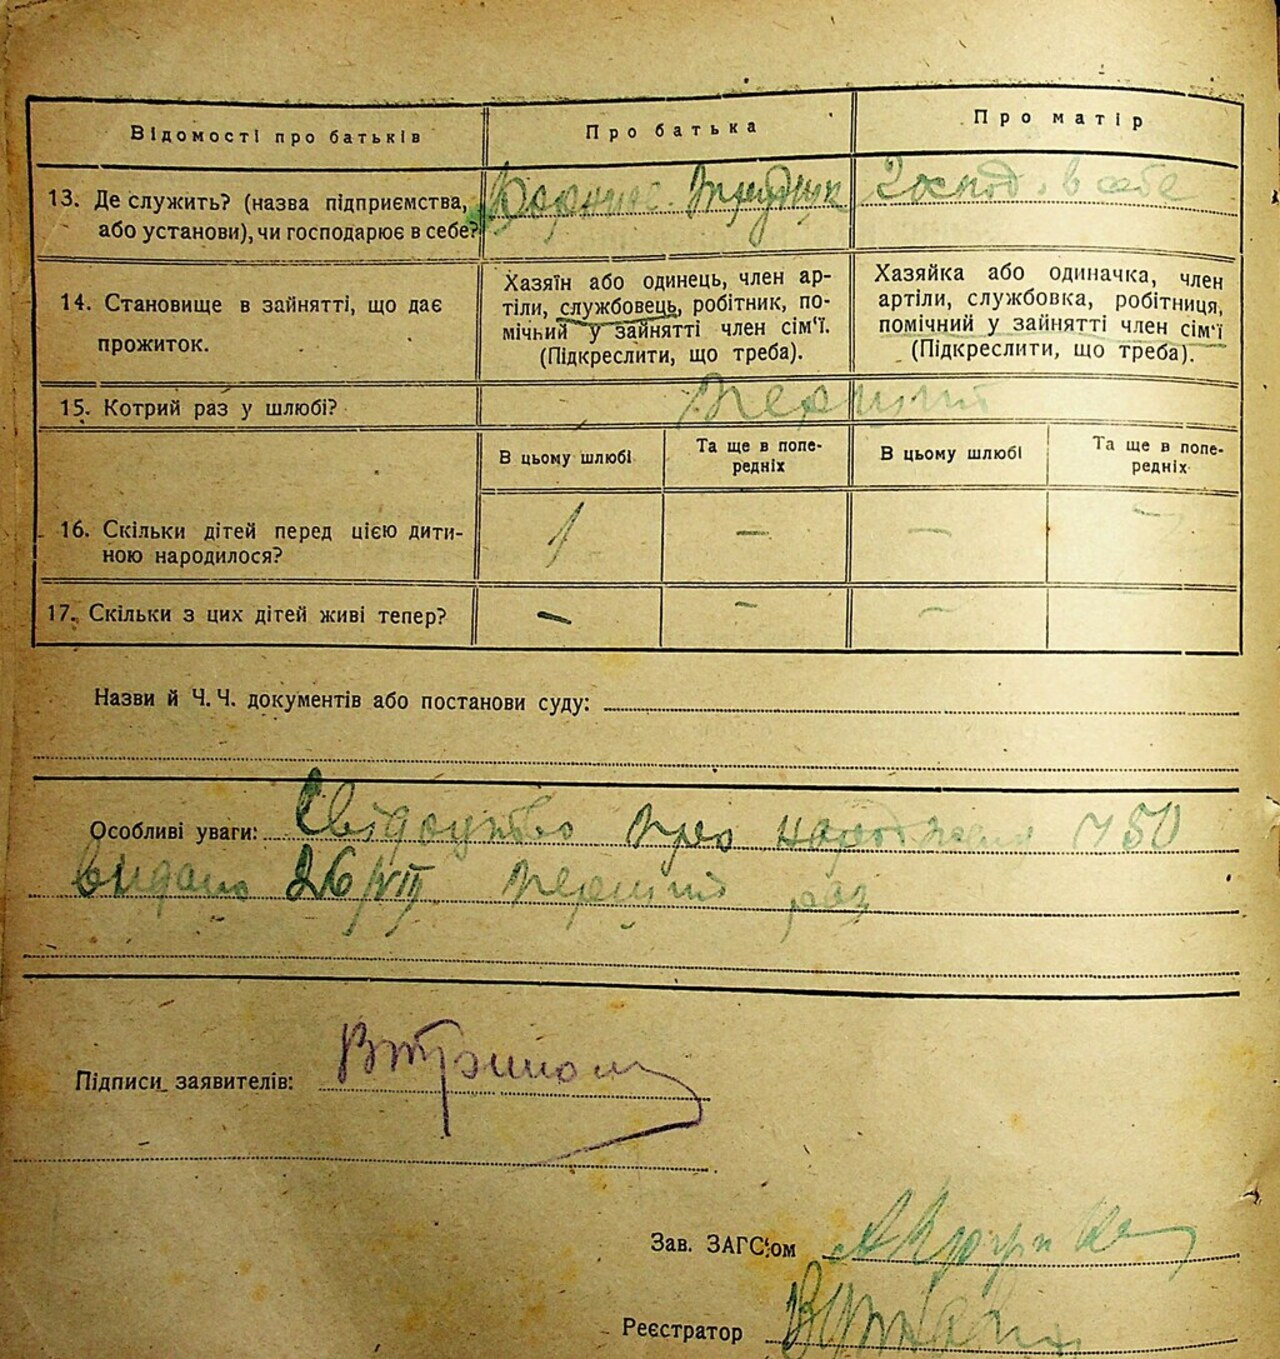 Відомості про батьків
Про батька
Про матір
13. Де служить? (назва підприємства,
або установи), чи господарює в себе?
Господ. в себе
14. Становище в зайнятті, що дає
прожиток.
Хазяїн або одинець, член ар-
тіли, службовець, робітник, по-
мічний у зайнятті член сім'ї.
(Підкреслити, що треба).
Хазяйка або одиначка, член
артіли, службовка, робітниця,
помічний у зайнятті член сім'ї
(Підкреслити, що треба).
15. Котрий раз у шлюбі?
Перший
В цьому шлюбі
Та ще в попе-
редніх
В цьому шлюбі
Та ще в попе-
редніх
16. Скільки дітей перед цією дити-
ною народилося?
1 — — —
17. Скільки з цих дітей живі тепер?
— — —
Назви й Ч. Ч. документів або постанови суду:
Особливі уваги: Свідоцтво про народження 750
видано 26/VII перший раз
Підписи заявителів:
Зав. ЗАГС'ом
Реєстратор